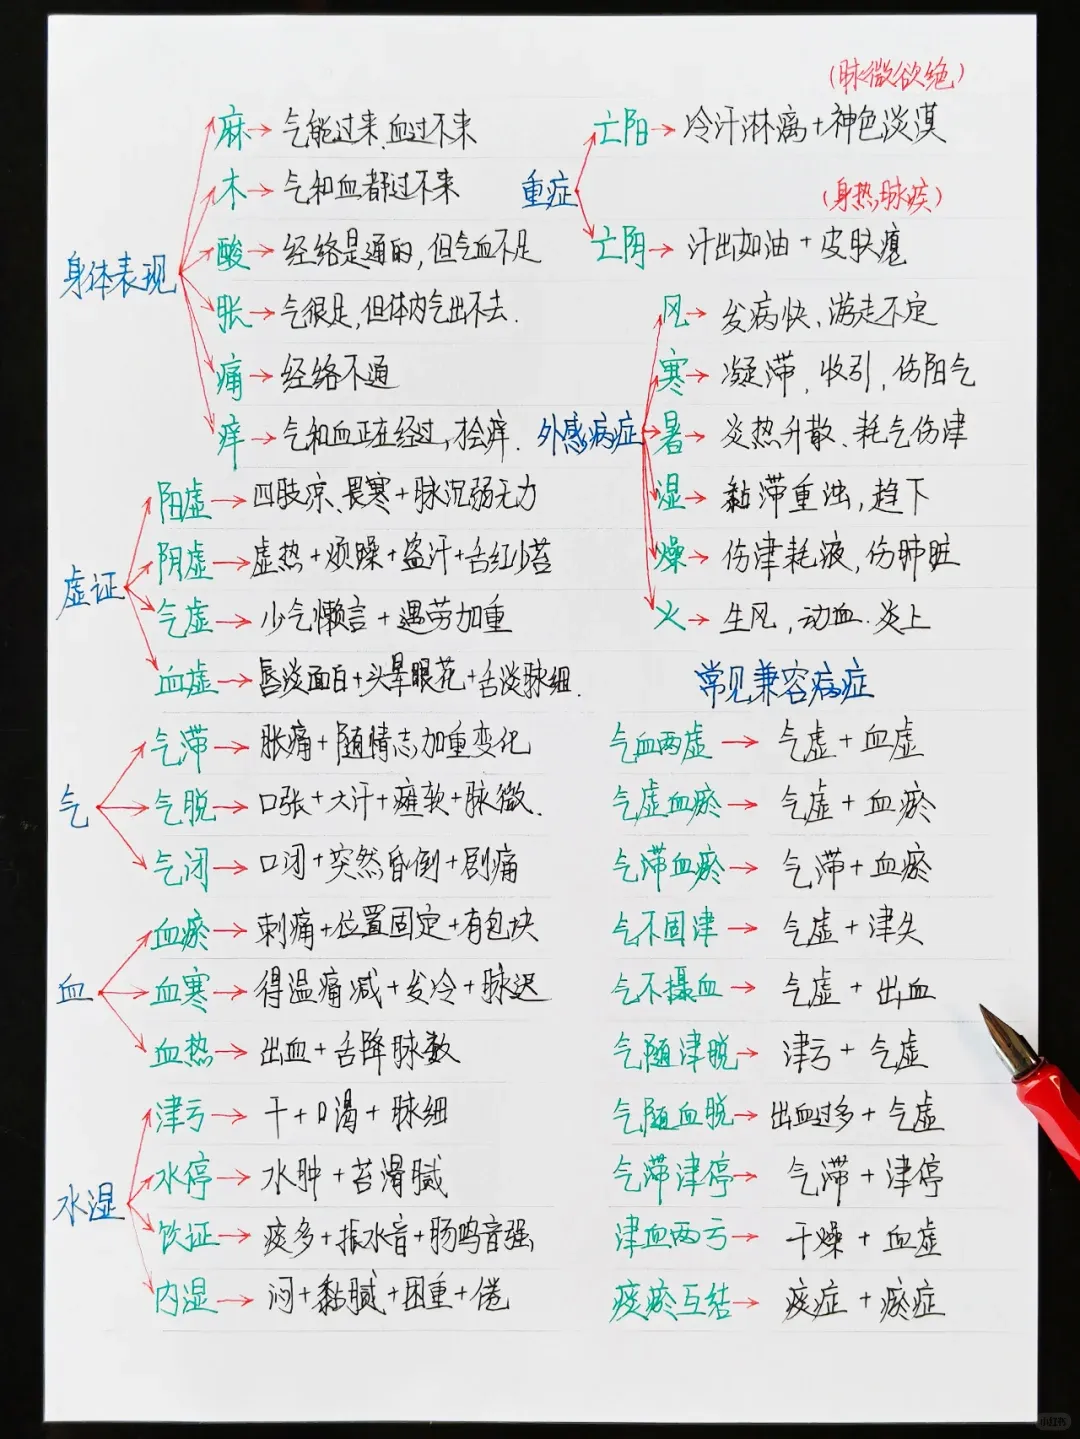 身体表现
麻→气能过来.血过不来
木→气和血都过不来
酸→经络是通的,但气血不足
胀→气很足,但体内气出不去.
痛→经络不通
痒→气和血正在经过,抢痒.
虚证
阳虚→四肢凉、畏寒+脉沉弱无力
阴虚→虚热+烦躁+盗汗+舌红少苔
气虚→少气懒言+遇劳加重
血虚→唇淡面白+头晕眼花+舌淡脉细.
气
气滞→胀痛+随情志加重变化
气脱→口张+大汗+瘫软+脉微.
气闭→口闭+突然昏倒+剧痛
血
血瘀→刺痛+位置固定+有包块
血寒→得温痛减+发冷+脉迟
血热→出血+舌降脉数
水湿
津亏→干+口渴+脉细
水停→水肿+苔滑腻
饮证→痰多+振水音+肠鸣音强
内湿→闷+黏腻+困重+倦
重症
(脉微欲绝)
亡阳→冷汗淋漓+神色淡漠
(身热,脉疾)
亡阴→汗出如油+皮肤瘪
外感病症
风→发病快、游走不定
寒→凝滞、收引,伤阳气
暑→炎热升散、耗气伤津
湿→黏滞重浊,趋下
燥→伤津耗液,伤肺脏
火→生风,动血.炎上
常见兼容病症
气血两虚→气虚+血虚
气虚血瘀→气虚+血瘀
气滞血瘀→气滞+血瘀
气不固津→气虚+津失
气不摄血→气虚+出血
气随津脱→津亏+气虚
气随血脱→出血过多+气虚
气滞津停→气滞+津停
津血两亏→干燥+血虚
痰瘀互结→痰症+瘀症
小红书